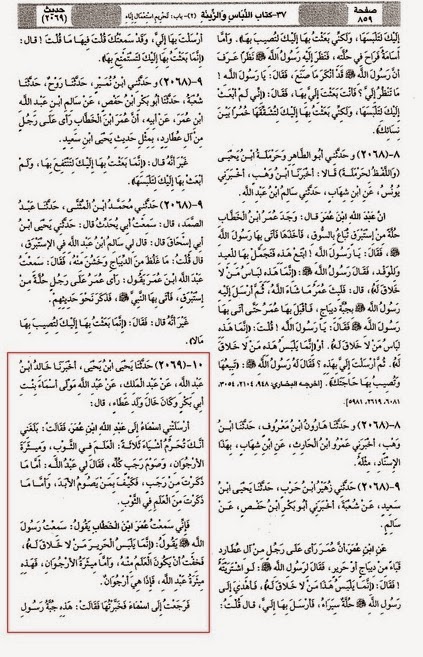 صفحة
٨٥٩
٣٧-كتاب اللباس والزينة (٢)-باب: تحريم استعمال إناء
حديث
(٢٠٦٩)
إِلَيْكَ لِتَلْبَسَهَا، وَلَكِنِّي بَعَثْتُ بِهَا إِلَيْكَ لِتُصِيبَ بِهَا» وَأَمَّا
أُسَامَةُ فَرَاحَ فِي حُلَّتِهِ، فَنَظَرَ إِلَيْهِ رَسُولُ اللَّهِ ﷺ نَظَرًا عَرَفَ
أَنَّ رَسُولَ اللَّهِ ﷺ قَدْ أَنْكَرَ مَا صَنَعَ، فَقَالَ: يَا رَسُولَ اللَّهِ!
مَا تَنْظُرُ إِلَيَّ؟ فَأَنْتَ بَعَثْتَ إِلَيَّ بِهَا، فَقَالَ: «إِنِّي لَمْ أَبْعَثْ
إِلَيْكَ لِتَلْبَسَهَا، وَلَكِنِّي بَعَثْتُ بِهَا إِلَيْكَ لِتُشَقِّقَهَا خُمُرًا بَيْنَ
نِسَائِكَ».
٨-(٢٠٦٨) و حَدَّثَنِي أَبُو الطَّاهِرِ وَحَرْمَلَةُ ابْنُ يَحْيَى
(وَاللَّفْظُ لِحَرْمَلَةَ) قَالا: أَخْبَرَنَا ابْنُ وَهْبٍ، أَخْبَرَنِي
يُونُسُ، عَنِ ابْنِ شِهَابٍ، حَدَّثَنِي سَالِمُ ابْنُ عَبْدِ اللَّهِ.
أَنَّ عَبْدَ اللَّهِ ابْنَ عُمَرَ قَالَ: وَجَدَ عُمَرُ ابْنُ الْخَطَّابِ
حُلَّةً مِنْ إِسْتَبْرَقٍ تُبَاعُ بِالسُّوقِ، فَأَخَذَهَا فَأَتَى بِهَا رَسُولَ اللَّهِ
ﷺ، فَقَالَ: يَا رَسُولَ اللَّهِ! ابْتَعْ هَذِهِ فَتَجَمَّلْ بِهَا لِلْعِيدِ
وَلِلْوَفْدِ، فَقَالَ رَسُولُ اللَّهِ ﷺ: «إِنَّمَا هَذِهِ لِبَاسُ مَنْ لا خَلاقَ
لَهُ» قَالَ: فَلَبِثَ عُمَرُ مَا شَاءَ اللَّهُ، ثُمَّ أَرْسَلَ إِلَيْهِ رَسُولُ اللَّهِ
ﷺ بِجُبَّةِ دِيبَاجٍ، فَأَقْبَلَ بِهَا عُمَرُ حَتَّى أَتَى بِهَا
رَسُولَ اللَّهِ ﷺ، فَقَالَ: يَا رَسُولَ اللَّهِ! قُلْتَ: «إِنَّمَا هَذِهِ
لِبَاسُ مَنْ لا خَلاقَ لَهُ، أَوْ إِنَّمَا يَلْبَسُ هَذِهِ مَنْ لا خَلاقَ
لَهُ». ثُمَّ أَرْسَلْتَ إِلَيَّ بِهَذِهِ؟ فَقَالَ لَهُ رَسُولُ اللَّهِ ﷺ: «تَبِيعُهَا
وَتُصِيبُ بِهَا حَاجَتَكَ». [أخرجه البخاري: ٩٤٨، ٢١٠٤، ٣٠٥٤،
٦٠٨١، ٢٦١٩، ٥٩٨١]
٨-(٢٠٦٨) و حَدَّثَنَا هَارُونُ ابْنُ مَعْرُوفٍ، حَدَّثَنَا ابْنُ
وَهْبٍ، أَخْبَرَنِي عَمْرُو ابْنُ الْحَارِثِ، عَنِ ابْنِ شِهَابٍ، بِهَذَا
الإِسْنَادِ، مِثْلَهُ.
٩-(٢٠٦٨) حَدَّثَنِي زُهَيْرُ ابْنُ حَرْبٍ، حَدَّثَنَا يَحْيَى ابْنُ
سَعِيدٍ، عَنْ شُعْبَةَ، أَخْبَرَنِي أَبُو بَكْرِ ابْنُ حَفْصٍ، عَنْ
سَالِمٍ.
عَنِ ابْنِ عُمَرَ، أَنَّ عُمَرَ رَأَى عَلَى رَجُلٍ مِنْ آلِ عُطَارِدٍ
قَبَاءً مِنْ دِيبَاجٍ أَوْ حَرِيرٍ، فَقَالَ لِرَسُولِ اللَّهِ ﷺ: لَوِ اشْتَرَيْتَهُ
فَقَالَ: «إِنَّمَا يَلْبَسُ هَذَا مَنْ لا خَلاقَ لَهُ»، فَأُهْدِيَ إِلَى
رَسُولِ اللَّهِ ﷺ حُلَّةٌ سِيَرَاءُ، فَأَرْسَلَ بِهَا إِلَيَّ، قَالَ قُلْتُ:
أَرْسَلْتَ بِهَا إِلَيَّ، وَقَدْ سَمِعْتُكَ قُلْتَ فِيهَا مَا قُلْتَ! قال:
«إِنَّمَا بَعَثْتُ بِهَا إِلَيْكَ لِتَسْتَمْتِعَ بِهَا».
٩-(٢٠٦٨) و حَدَّثَنِي ابْنُ نُمَيْرٍ، حَدَّثَنَا رَوْحٌ، حَدَّثَنَا
شُعْبَةُ، حَدَّثَنَا أَبُو بَكْرِ ابْنُ حَفْصٍ، عَنْ سَالِمِ ابْنِ عَبْدِ اللَّهِ
ابْنِ عُمَرَ، عَنْ أَبِيهِ، أَنَّ عُمَرَ ابْنَ الْخَطَّابِ رَأَى عَلَى رَجُلٍ
مِنْ آلِ عُطَارِدٍ، بِمِثْلِ حَدِيثِ يَحْيَى ابْنِ سَعِيدٍ.
غَيْرَ أَنَّهُ قَالَ: «إِنَّمَا بَعَثْتُ بِهَا إِلَيْكَ لِتَنْتَفِعَ بِهَا، وَلَمْ
أَبْعَثْ بِهَا إِلَيْكَ لِتَلْبَسَهَا».
٩-(٢٠٦٨) حَدَّثَنِي مُحَمَّدُ ابْنُ الْمُثَنَّى، حَدَّثَنَا عَبْدُ
الصَّمَدِ، قال: سَمِعْتُ أَبِي يُحَدِّثُ قال: حَدَّثَنِي يَحْيَى ابْنُ
أَبِي إِسْحَاقَ قال: قال لِي سَالِمُ ابْنُ عَبْدِ اللَّهِ فِي الإِسْتَبْرَقِ،
قال قُلْتُ: مَا غَلُظَ مِنَ الدِّيبَاجِ وَخَشُنَ مِنْهُ، فَقَالَ: سَمِعْتُ
عَبْدَ اللَّهِ ابْنَ عُمَرَ يَقُولُ: رَأَى عُمَرُ عَلَى رَجُلٍ حُلَّةً مِنْ
إِسْتَبْرَقٍ، فَأَتَى بِهَا النَّبِيَّ ﷺ، فَذَكَرَ نَحْوَ حَدِيثِهِمْ.
غَيْرَ أَنَّهُ قال: فَقَالَ: «إِنَّمَا بَعَثْتُ بِهَا إِلَيْكَ لِتُصِيبَ بِهَا
مَالا».
١٠-(٢٠٦٩) حَدَّثَنَا يَحْيَى ابْنُ يَحْيَى، أَخْبَرَنَا خَالِدُ ابْنُ
عَبْدِ اللَّهِ، عَنْ عَبْدِ الْمَلِكِ، عَنْ عَبْدِ اللَّهِ مَوْلَى أَسْمَاءَ بِنْتِ
أَبِي بَكْرٍ وَكَانَ خَالَ وَلَدِ عَطَاءٍ، قال:
أَرْسَلَتْنِي أَسْمَاءُ إِلَى عَبْدِ اللَّهِ ابْنِ عُمَرَ، فَقَالَتْ: بَلَغَنِي
أَنَّكَ تُحَرِّمُ أَشْيَاءَ ثَلاثَةً: الْعَلَمَ فِي الثَّوْبِ، وَمِيثَرَةَ
الأُرْجُوَانِ، وَصَوْمَ رَجَبٍ كُلِّهِ، فَقَالَ لِي عَبْدُ اللَّهِ: أَمَّا مَا
ذَكَرْتَ مِنْ رَجَبٍ، فَكَيْفَ بِمَنْ يَصُومُ الأَبَدَ، وَأَمَّا مَا
ذَكَرْتَ مِنَ الْعَلَمِ فِي الثَّوْبِ.
فَإِنِّي سَمِعْتُ عُمَرَ ابْنَ الْخَطَّابِ يَقُولُ: سَمِعْتُ رَسُولَ
اللَّهِ ﷺ يَقُولُ: «إِنَّمَا يَلْبَسُ الْحَرِيرَ مَنْ لا خَلاقَ لَهُ»،
فَخِفْتُ أَنْ يَكُونَ الْعَلَمُ مِنْهُ، وَأَمَّا مِيثَرَةُ الأُرْجُوَانِ، فَهَذِهِ
مِيثَرَةُ عَبْدِ اللَّهِ، فَإِذَا هِيَ أُرْجُوَانٌ.
فَرَجَعْتُ إِلَى أَسْمَاءَ فَخَبَّرْتُهَا فَقَالَتْ: هَذِهِ جُبَّةُ رَسُولِ